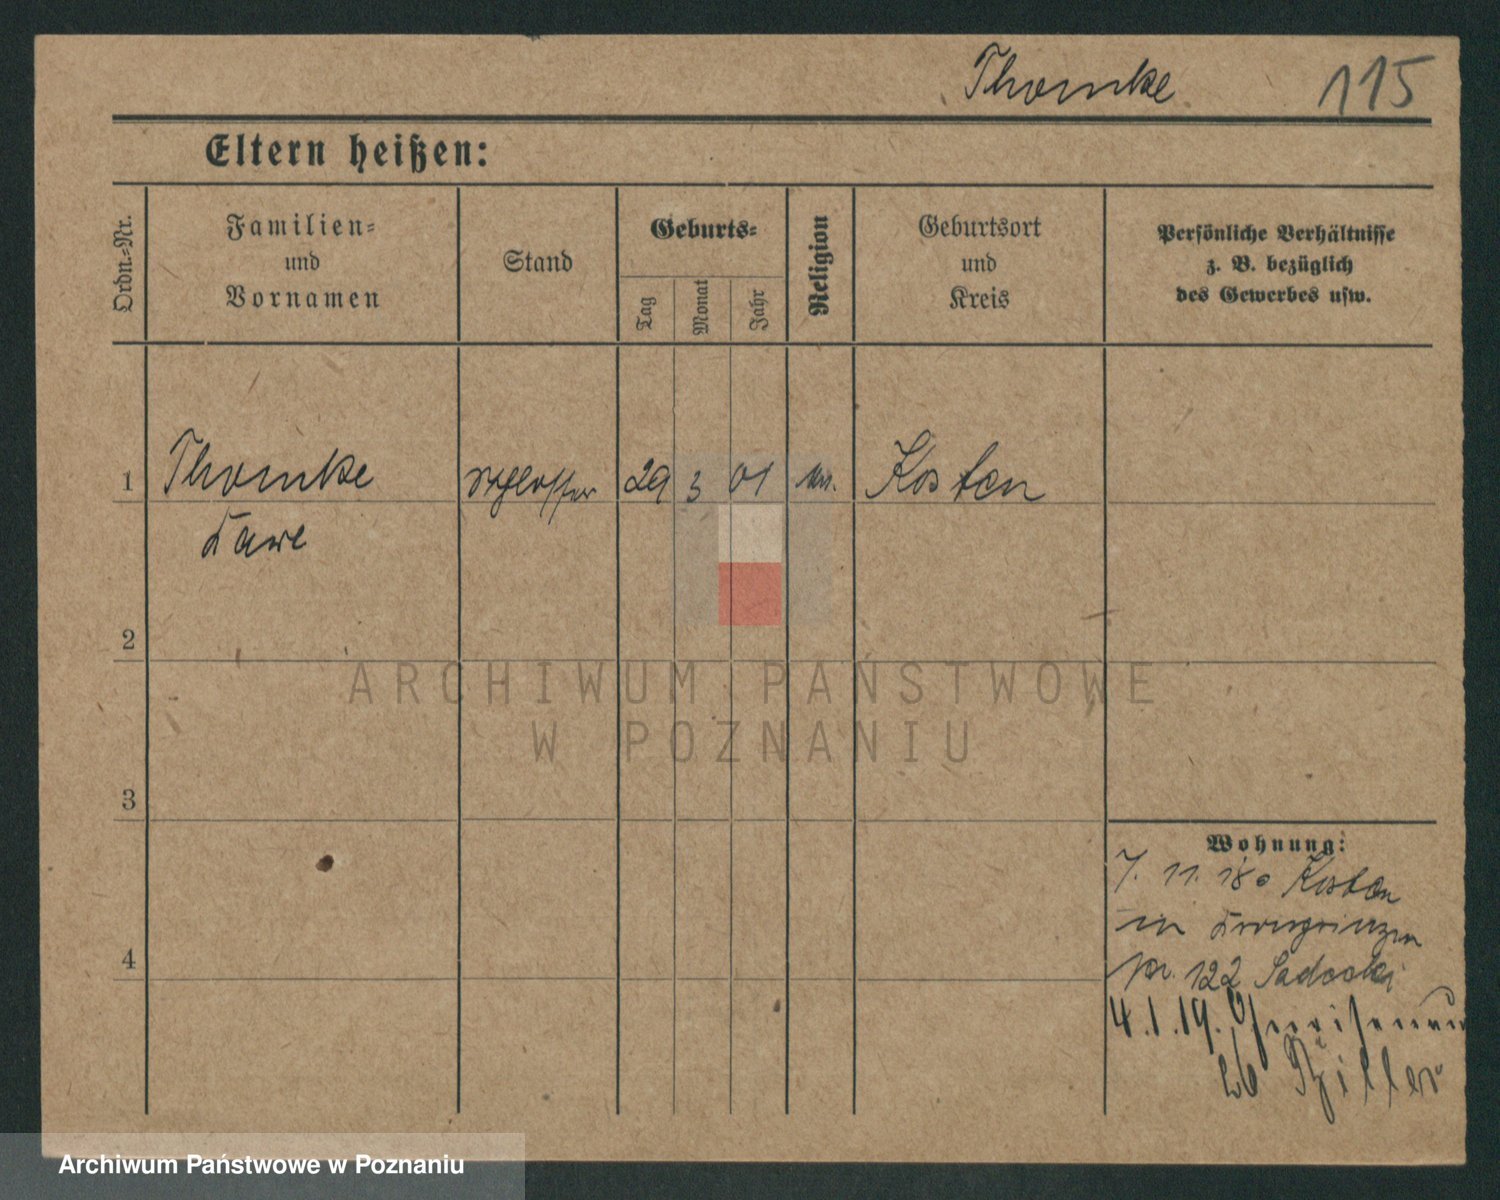 Thomke 115
Eltern heißen:
Ordn.-Nr.
Familien-
und
Vornamen
Stand
Geburts-
Tag
Monat
Jahr
Religion
Geburtsort
und
Kreis
Persönliche Verhältnisse
z. B. bezüglich
des Gewerbes usw.
1 Thomke Schlosser 29 3 01 Kosten
Karl
2
3
4
Wohnung:
7. 11. 18 Kosten
in Kronprinzen
122 Sadecki
4. 1. 19.
26
ARCHIWUM PAŃSTWOWE
W POZNANIU
Archiwum Państwowe w Poznaniu